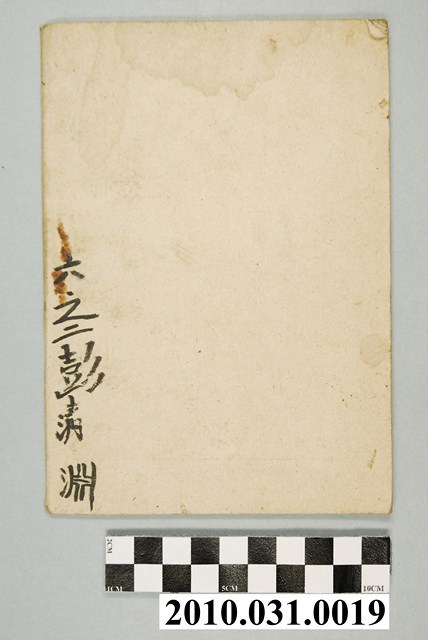 六之二彭清淵
2CM
1CM 5CM 10CM
2010.031.0019